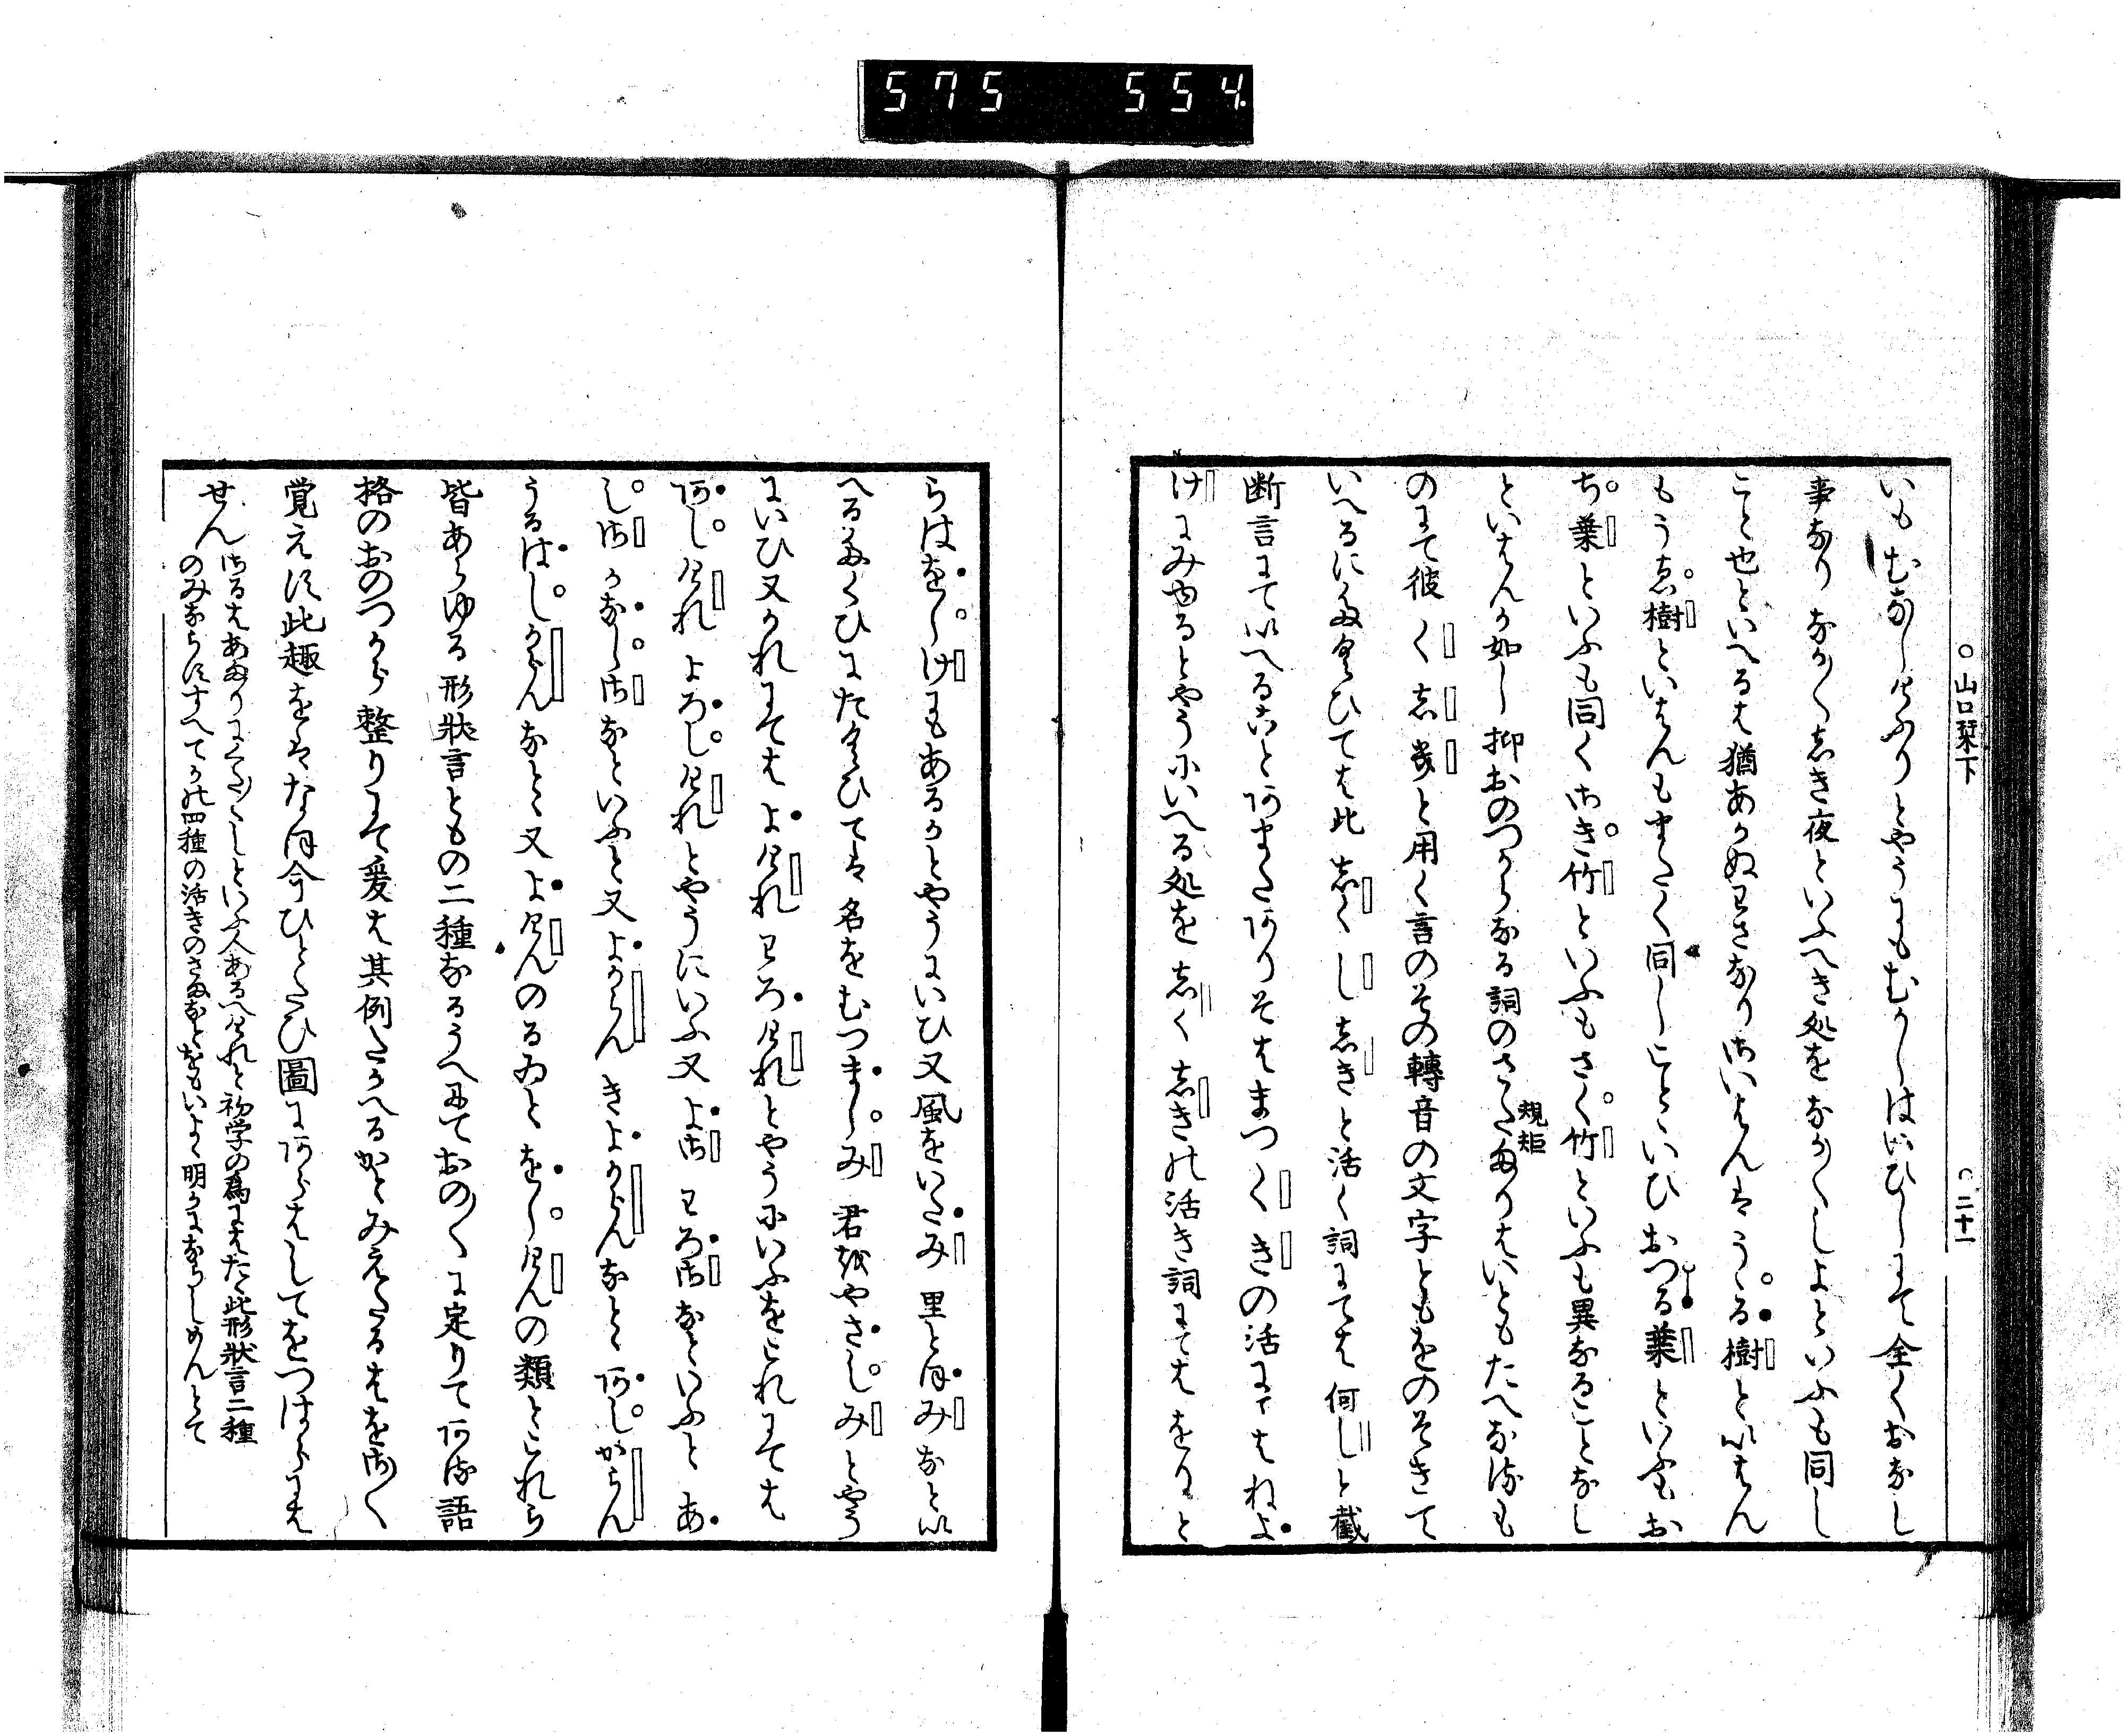 575 554
○山口栞下 ○二十一
いもむなしけふりとやうにもむかしはいひしにて全くおなし
事なり なかくしき夜といふへき処をなかくしよといふも同し
こと也といへるは猶あかぬわさなりさいはんはうゝる樹といはん
もうゑ樹といはんもまたく同しことゝいひおつる葉といふもお
ち葉といふも同くさき竹といふもさく竹といふも異なることなし
といはんか如し抑おのつからなる詞のさたまりはいともたへなるも
規矩
のにて彼くしきと用く言のその轉音の文字ともをのそきて
いへるにたくひては此しくししきと活く詞にては何しと截
断言にていへることあまたありそはまつくきの活にてはねよ
けにみゆるとやうにいへる処をしくしきの活き詞にてはをりと
らはをしけにもあるかとやうにいひ又風をいたみ里とほみなとい
へるたくひにたくひては名をむつましみ君をやさしみとやう
にいひ又かれにてはよけれわろけれとやうにいふをこれにては
あしけれよろしけれとやうにいふ又よさわろさなといふとあ
しさかなしさなといふと又よからんきよからんなとゝあしからん
うるはしからんなとゝ又よけんのるゐとをしけんの類とこれら
皆あらゆる形状言ともの二種なるうへにておのくに定りてある語
格のおのつから整りにて爰は其例たかへるかとみえたるはをさく
覚えす此趣をはなほ今ひとたひ圖にあらはしてをつはらには
せん
さるはあまりにくたくしといふ人あるへけれと初学の為にはたゝ此形状言二種
のみならすすへてかの四種の活きのさまなとをもいよゝ明かにならしめんとて